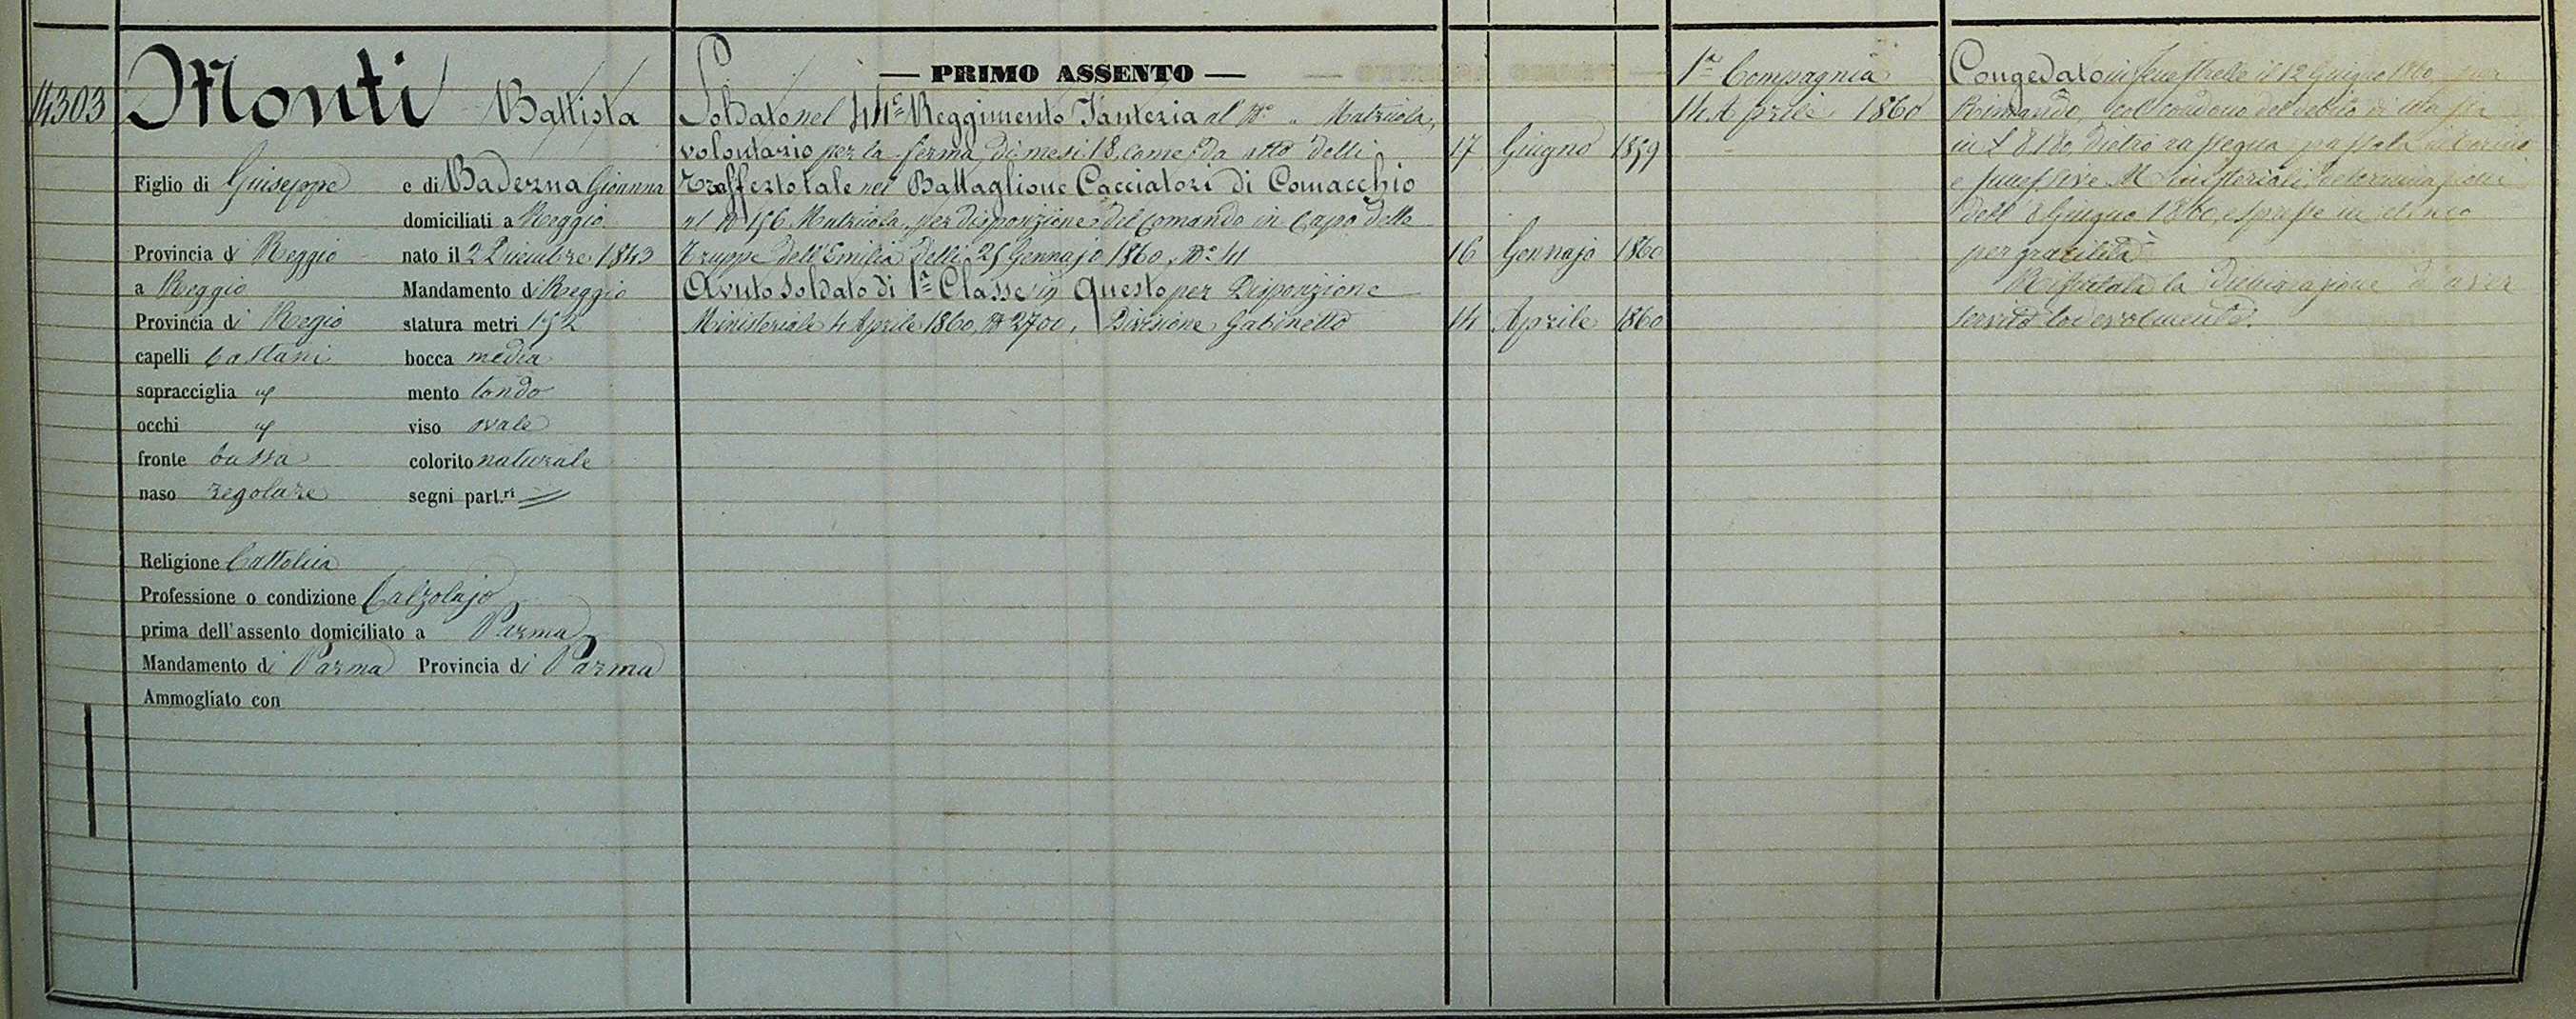 14303
Monti Battista
Figlio di Giuseppe e di Baderna Gioanna
domiciliati a Reggio
Provincia di Reggio nato il 2 Dicembre 1843
a Reggio Mandamento di Reggio
Provincia di Regio statura metri 1,52
capelli castani bocca media
sopracciglia id mento tondo
occhi id viso ovale
fronte bassa colorito naturale
naso regolare segni part.ri
Religione Cattolica
Professione o condizione Calzolajo
prima dell'assento domiciliato a Parma
Mandamento di Parma Provincia di Parma
Ammogliato con
— PRIMO ASSENTO —
Soldato nel 44º Reggimento Fanteria al Nº " Matricola,
volontario per la ferma di mesi 18, come da atto delli 17 Giugno 1859
Trasferto tale nel Battaglione Cacciatori di Comacchio
al Nº 156 Matricola, per disposizione del Comando in Capo delle
Truppe dell'Emilia delli 25 Gennajo 1860, Nº 41 16 Gennajo 1860
Avuto Soldato di 1ª Classe in Questo per Disposizione
Ministeriale 4 Aprile 1860 Nº 2700, Divisione Gabinetto 14 Aprile 1860
1ª Compagnia
14 Aprile 1860
Congedato in Fenestrelle il 12 Giugno 1860 per
Rimando, col condono del debito di massa
in L 8 180, dietro rassegna passata in Torino
e successive Ministeriali determinazioni
dell' 8 Giugno 1860, espresse in elenco
per gracilità
Rilasciata la Dichiarazione d'aver
servito lodevolmente.